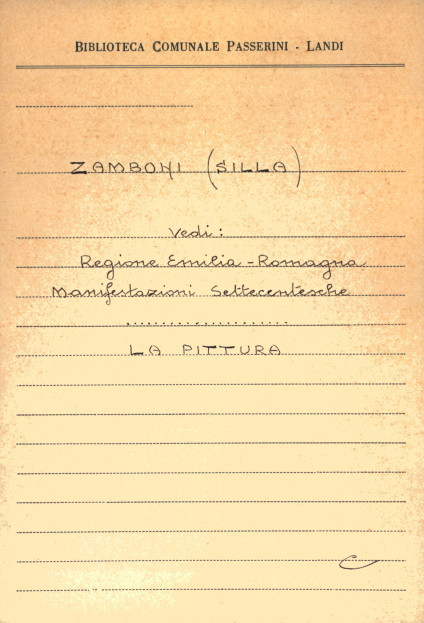 BIBLIOTECA COMUNALE PASSERINI - LANDI
ZAMBONI (SILLA)
Vedi:
Regione Emilia-Romagna
Manifestazioni Settecentesche
....................
LA PITTURA
C